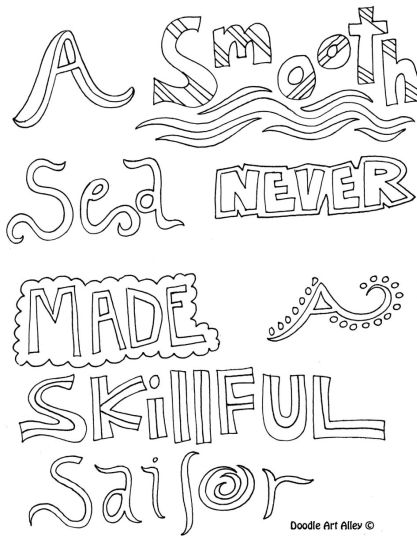 A Smooth
Sea NEVER
MADE A
SKillFUL
Sailor
Doodle Art Alley ©